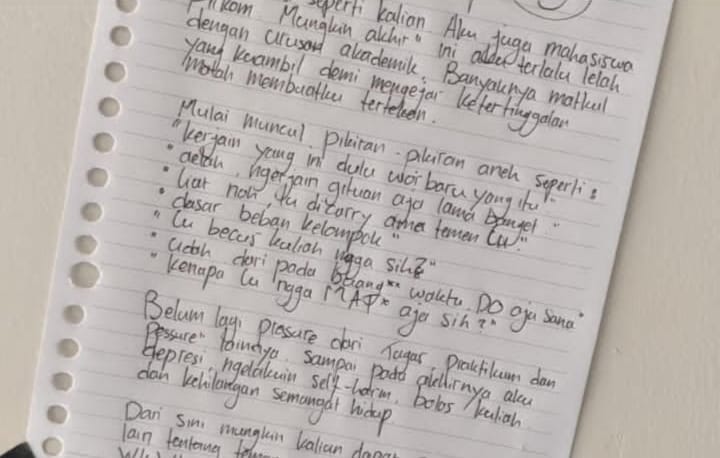 seperti kalian Aku juga mahasiswa
Filkom Mungkin akhir" ini aku terlalu lelah
dengan urusan akademik. Banyaknya matkul
yang kuambil demi mengejar ketertinggalan
malah membuatku tertekan.
Mulai muncul pikiran-pikiran aneh seperti:
"kerjain yang ini dulu woi baru yang itu"
• "aelah, ngerjain gituan aja lama banget"
• "liat noh, lu dicarry ama temen lu"
• "dasar beban kelompok"
• "Lu becus kuliah ngga sih?"
• "udah dari pada buang** waktu, DO aja sana"
• "kenapa lu ngga MAT* aja sih?"
Belum lagi pressure dari Tugas praktikum dan
Pessure" lainnya. Sampai pada akhirnya aku
depresi ngelakuin self-harm, bolos kuliah
dan kehilangan semangat hidup.
Dari sini mungkin kalian dapat
lain tentang